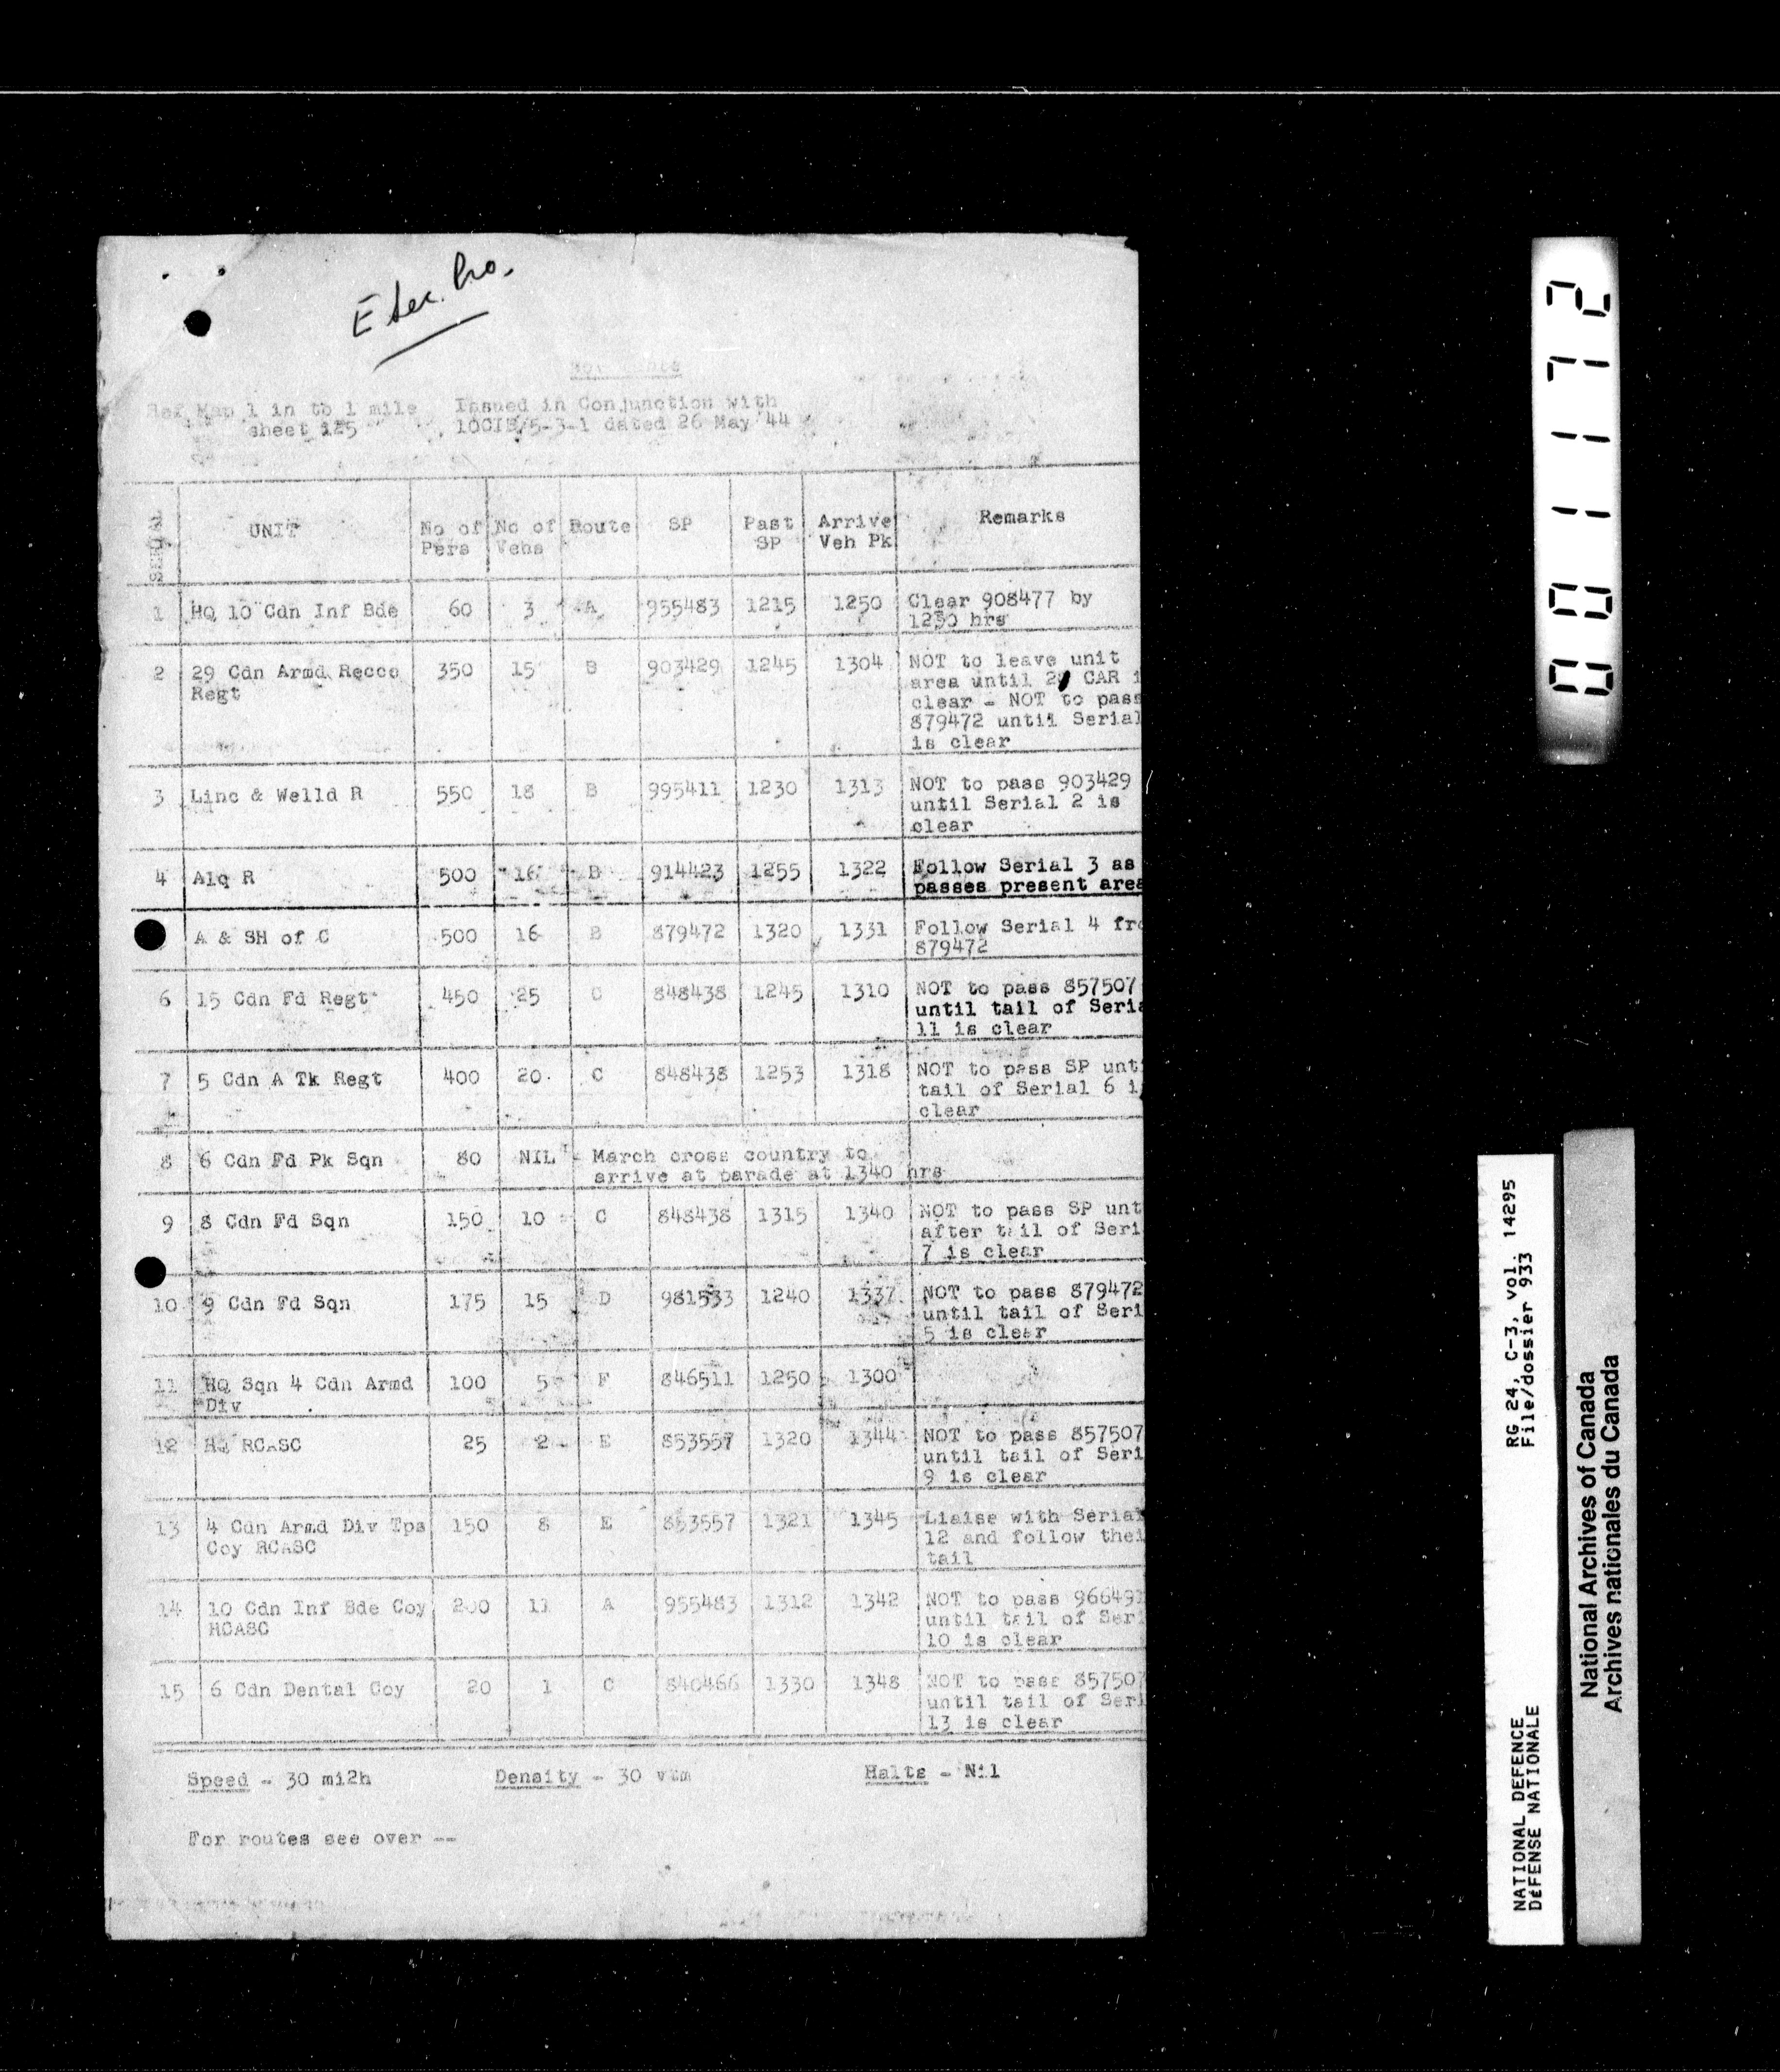 Ref Map 1 in to 1 mile
sheet 125
Issued in Conjunction with
10CIB/5-3-1 dated 26 May '44
SERIAL UNIT No of Pers No of Vehs Route SP Past SP Arrive Veh Pk Remarks
1 HQ 10 Cdn Inf Bde 60 3 A 955483 1215 1250 Clear 908477 by
1250 hrs
2 29 Cdn Armd Recce 350 15 B 903429 1245 1304 NOT to leave unit
Regt area until CAR
clear - NOT to pass
879472 until Serial
is clear
3 Linc & Welld R 550 18 B 995411 1230 1313 NOT to pass 903429
until Serial 2 is
clear
4 Alq R 500 16 B 914423 1255 1322 Follow Serial 3 as
passes present area
A & SH of C 500 16 B 879472 1320 1331 Follow Serial 4 fro
879472
6 15 Cdn Fd Regt 450 25 C 848438 1245 1310 NOT to pass 857507
until tail of Seria
11 is clear
7 5 Cdn A Tk Regt 400 20 C 848438 1253 1318 NOT to pass SP unti
tail of Serial 6 i
clear
8 6 Cdn Fd Pk Sqn 80 NIL March cross country to
arrive at parade at 1340 hrs
9 8 Cdn Fd Sqn 150 10 C 848438 1315 1340 NOT to pass SP unt
after tail of Seri
7 is clear
10 9 Cdn Fd Sqn 175 15 D 981533 1240 1337 NOT to pass 879472
until tail of Seri
5 is clear
11 HQ Sqn 4 Cdn Armd 100 5 F 846511 1250 1300
Div
12 HQ RCASC 25 2 E 853557 1320 1344 NOT to pass 857507
until tail of Seri
9 is clear
13 4 Cdn Armd Div Tps 150 8 E 853557 1321 1345 Liaise with Serial
Coy RCASC 12 and follow thei
tail
14 10 Cdn Inf Bde Coy 200 11 A 955483 1312 1342 NOT to pass 966491
RCASC until tail of Seri
10 is clear
15 6 Cdn Dental Coy 20 1 C 840466 1330 1348 NOT to pass 857507
until tail of Seri
13 is clear
Speed - 30 mi2h Density - 30 vtm Halts - Nil
For routes see over --
001172
RG 24, C-3, vol. 14295
File/dossier 933
NATIONAL DEFENCE
DÉFENSE NATIONALE
National Archives of Canada
Archives nationales du Canada